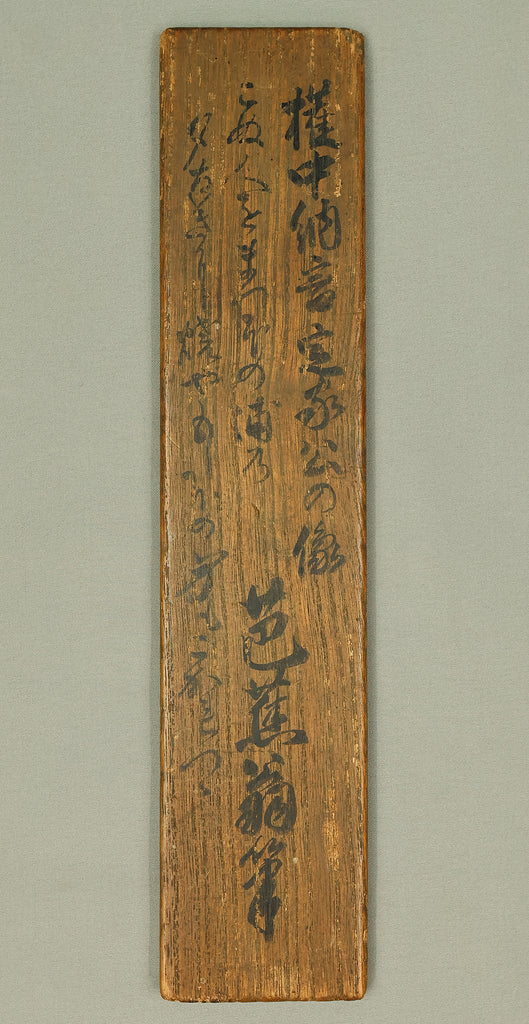 權中納言定家公の像
こぬ人をまつほの浦乃
夕なきに焼やもしほの身もこかれつゝ
芭蕉翁筆